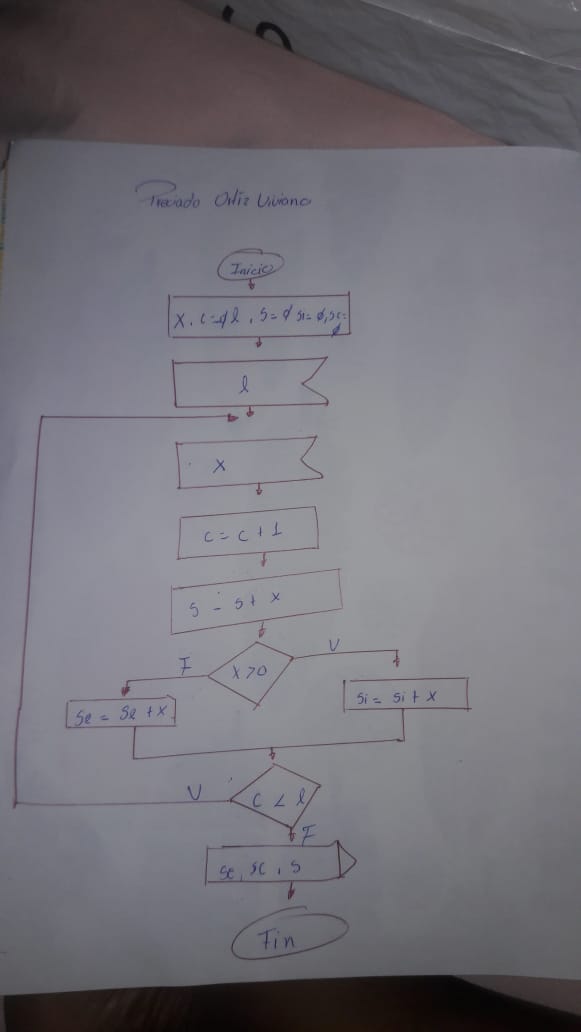 Preciado Ortiz Viviana
Inicio
X, c=ø l, S=ø si=ø, sc=
ø
l
X
c = c + 1
S = S + X
X > 0
F
V
Se = Se + X
Si = Si + X
C < l
V
F
Se, SC, S
Fin